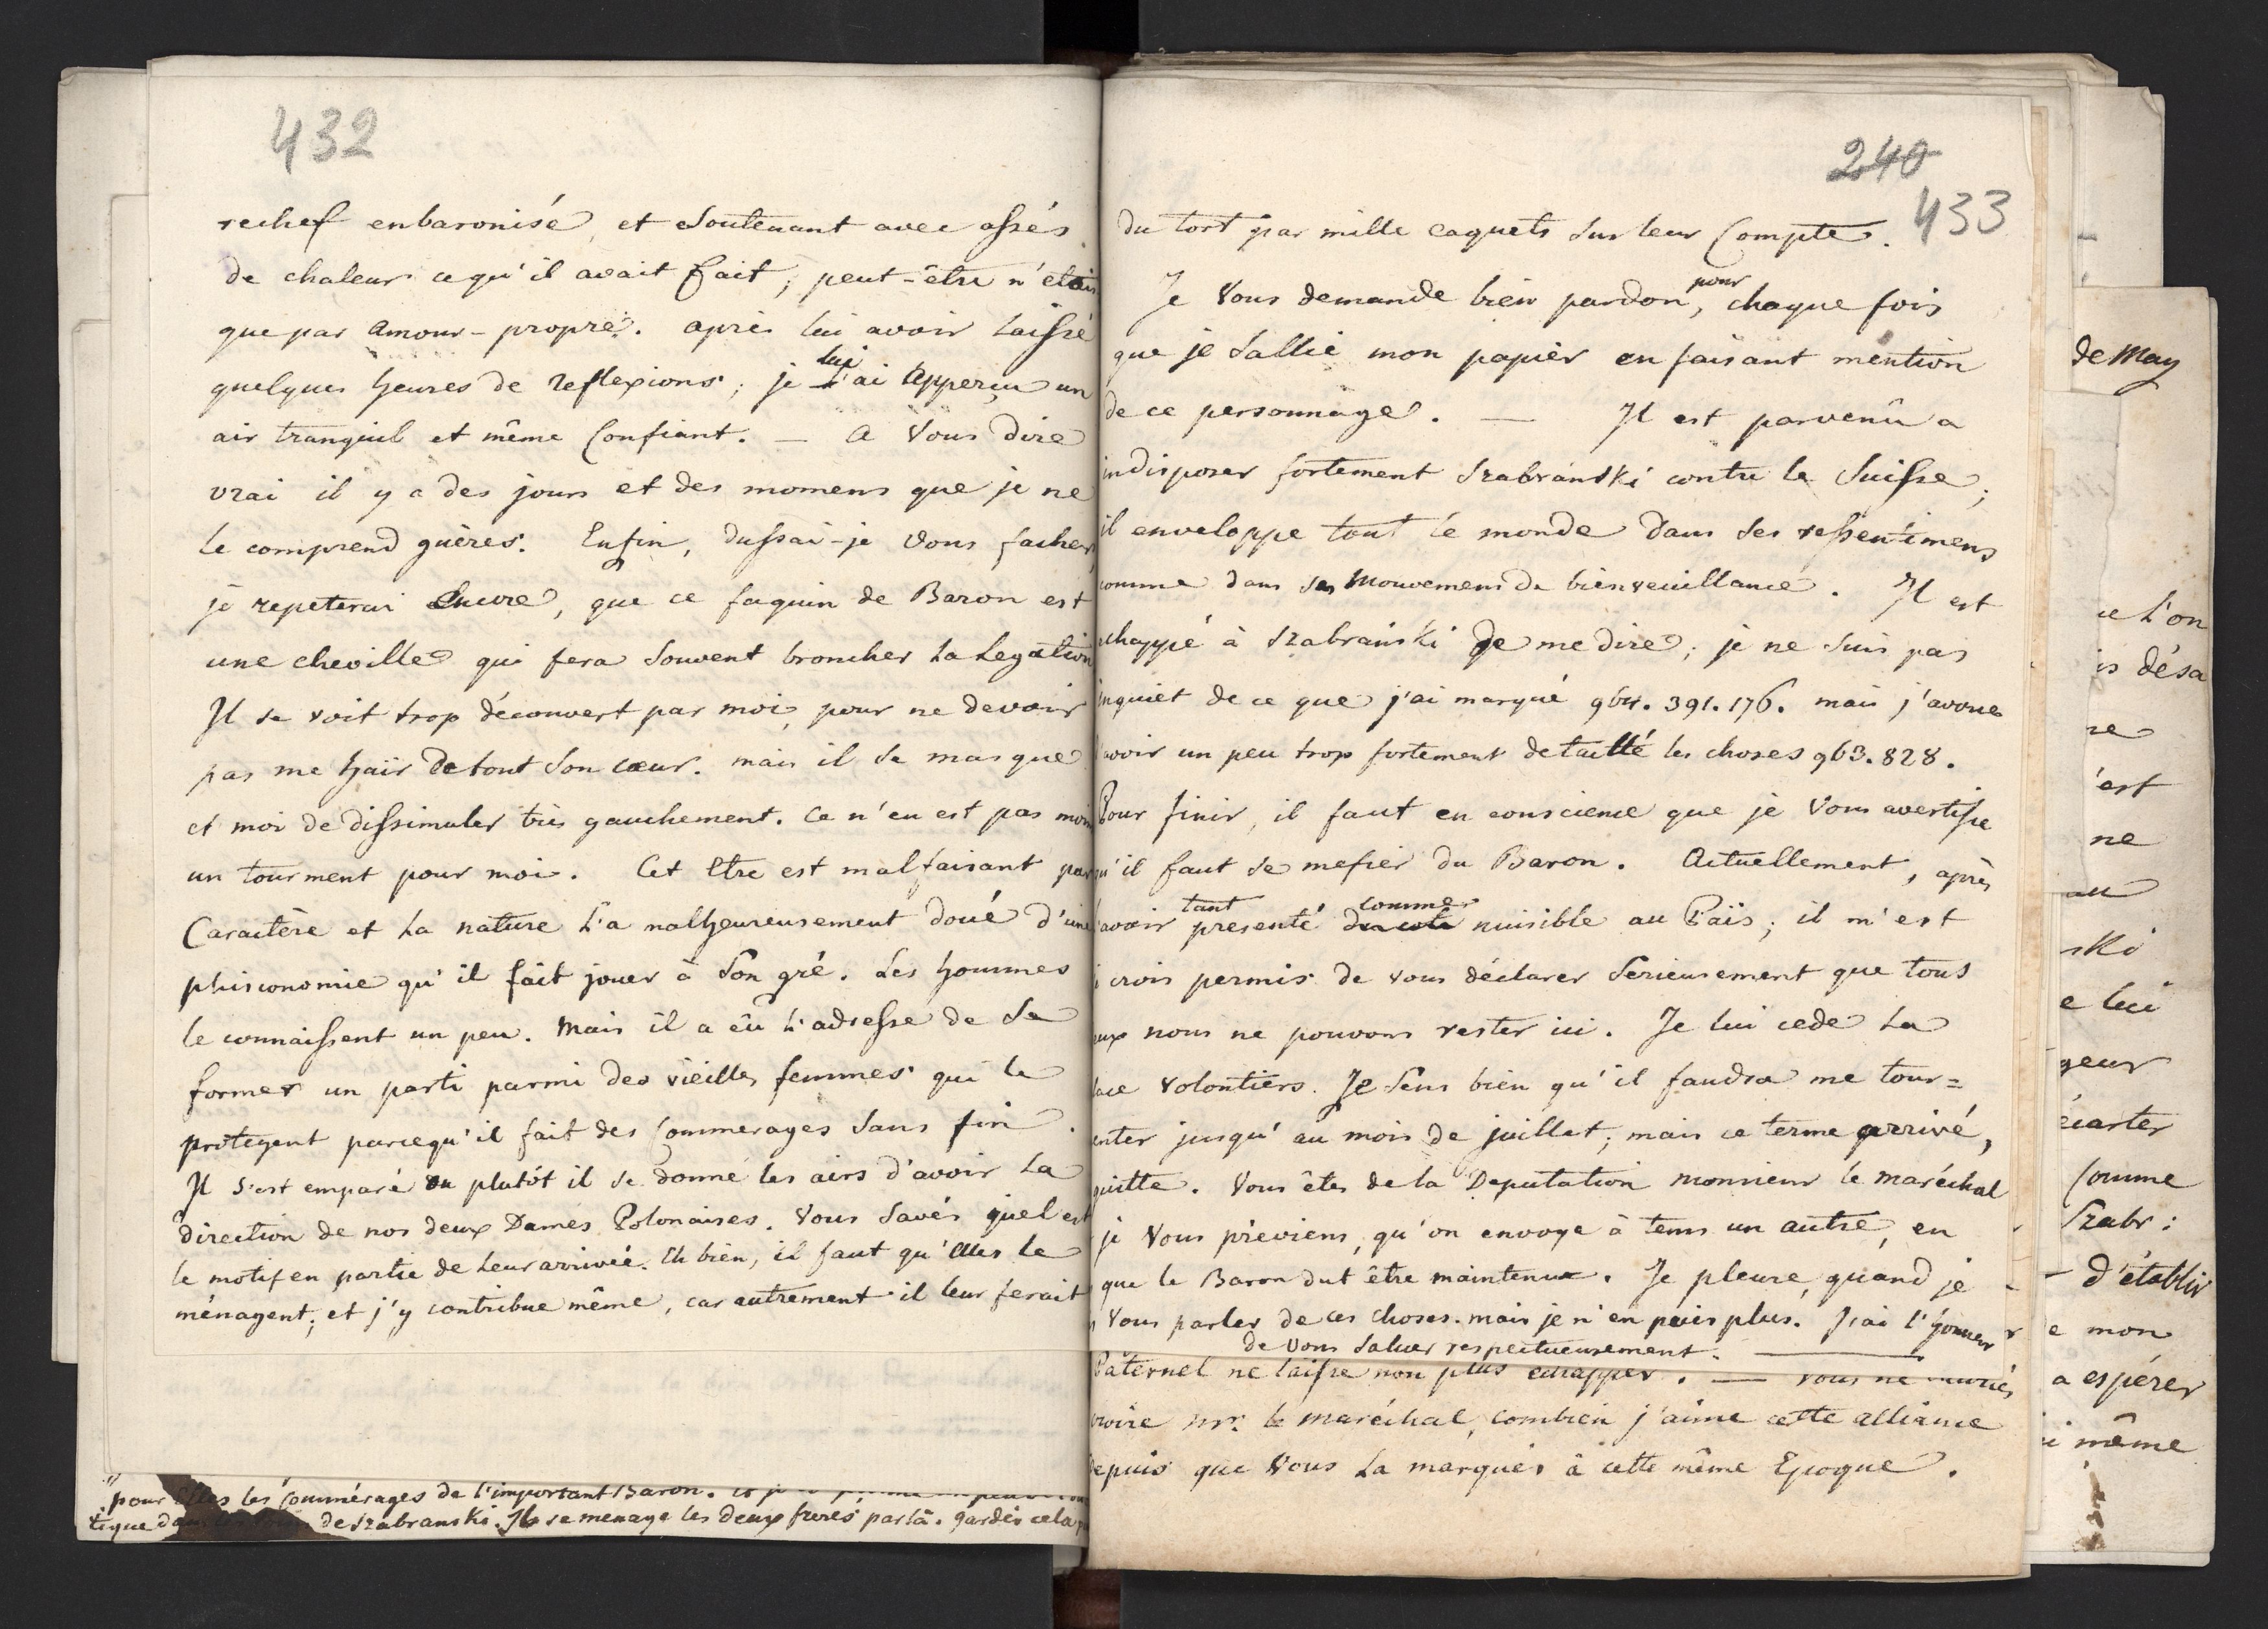 432
rechef enbaronisé, et soutenant avec assés
de chaleur ce qu'il avait fait, peut-être n'etais
que par amour-propre. après lui avoir laissé
lui
quelques heures de reflexions, je l'ai apperçu un
air tranquil et même Confiant. — A Vous dire
vrai il y a des jours et des momens que je ne
le comprend guères. Enfin, dussai-je Vous facher,
je repeterai Encore, que ce faquin de Baron est
une cheville qui fera souvent broncher la Legation
Il se voit trop découvert par moi, pour ne devoir
pas me haïr de tout son cœur. mais il se masque
et moi de dissimuler très gauchement. Ce n'en est pas moin
un tourment pour moi. Cet Etre est malfaisant par
Caractère et la nature l'a malheureusement doué d'une
phisconomie qu'il fait jouer à son gré. Les hommes
le connaissent un peu. Mais il a êu l'adresse de se
former un parti parmi des vieilles femmes qui le
protegent parcequ'il fait des Commerages sans fin.
Il s'est emparé ou plutôt il se donne les airs d'avoir la
direction de nos deux Dames Polonaises. Vous savés quel est
le motif en partie de leur arrivée. Eh bien, il faut qu'Elles le
ménagent, et j'y contribue même, car autrement il leur ferait
pour Elles les Commérages de l'important Baron.
tique de Szabranski. Il se menage les deux freres par là. gardés cela
240
433
du tort par mille caquets sur leur Compte.
pour
Je Vous demande bien pardon, chaque fois
que je sallie mon papier en faisant mention
de ce personnage. — Il est parvenû a
indisposer fortement Szabrański contre le Suisse,
il enveloppe tout le monde dans ses ressentimens
comme dans ses Mouvemens de bienveuillance. Il est
echappé à Szabrański de me dire, je ne suis pas
inquiet de ce que j'ai marqué 964. 391. 176. mais j'avoue
avoir un peu trop fortement detaillé les choses 963. 828.
Pour finir, il faut en conscience que je Vous avertisse
qu'il faut se mefier du Baron. Actuellement, après
tant comme
l'avoir presenté nuisible au Païs, il m'est
crois permis de vous déclarer serieusement que tous
eux nous ne pouvons rester ici. Je lui cede la
lace volontiers. Je sens bien qu'il faudra me tour=
enter jusqu'au mois de juillet, mais ce terme arrivé,
quitte. Vous êtes de la Deputation monsieur le maréchal
je Vous préviens, qu'on envoye à tems un autre, en
que le Baron dut être maintenu. Je pleure, quand je
Vous parler de ces choses. mais je n'en puis plus. J'ai l'honneur
de Vous saluer respectueusement.
Paternel ne laisse non plus echapper. — Vous ne
croire mr. le maréchal, combien j'aime cette alliance
depuis que Vous la marqués à cette même Epoque.
de May
ce l'on
is désa
re
'est
ne
au
ski
e lui
geur
écarter
Comme
Szabr:
d'établir
e mon
a espérer
i même